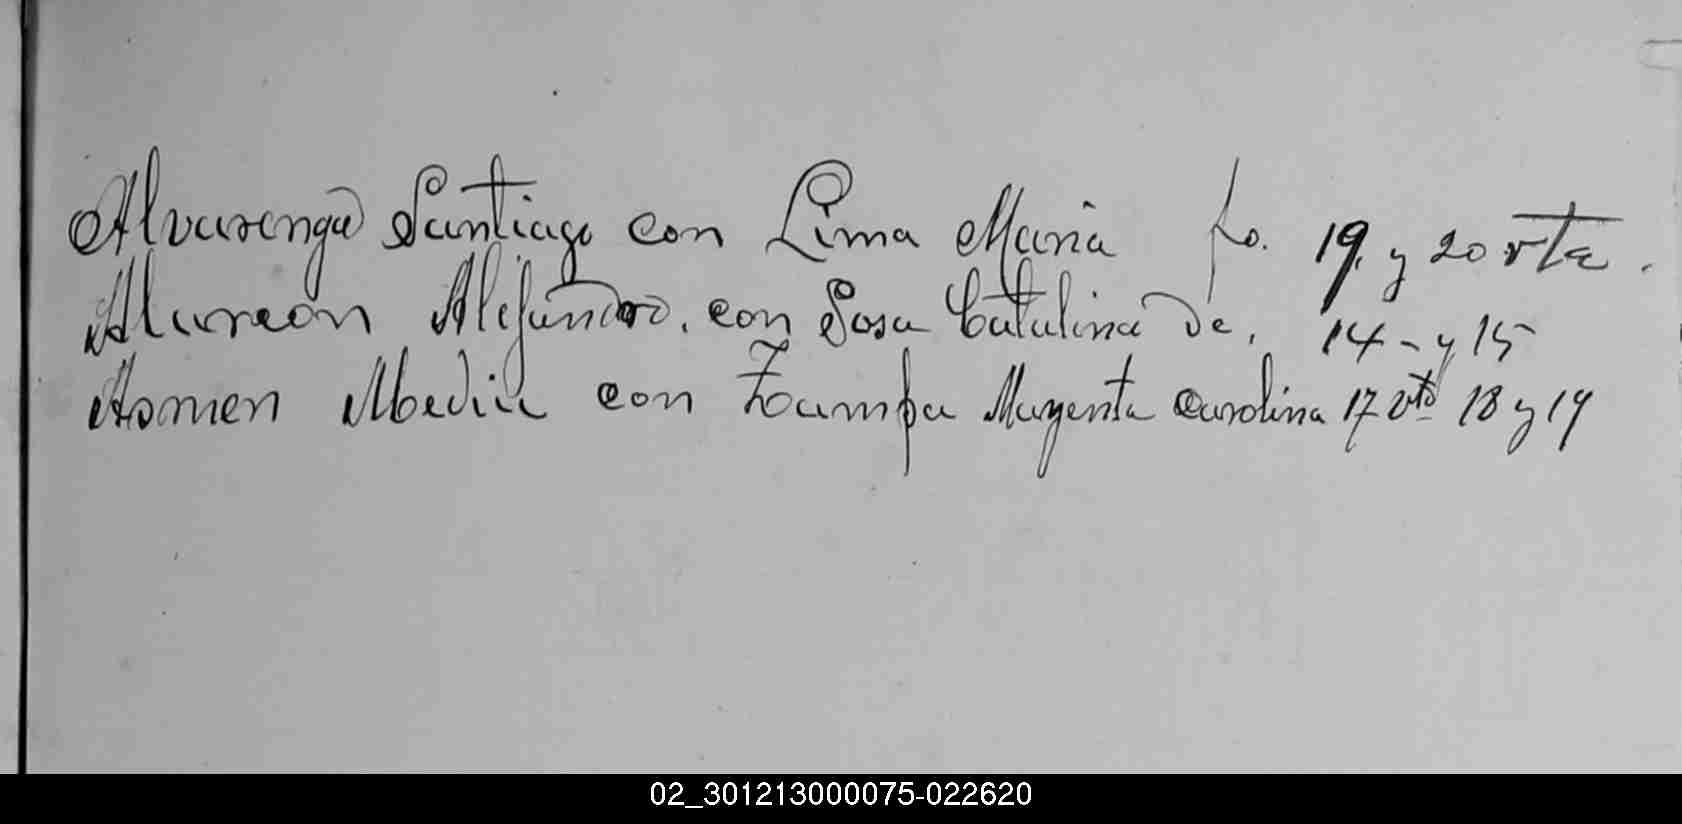 Alvarenga Santiago con Lima Maria fo. 19. y 20 vta.
Alarcon Alejandro. con Sosa Catalina de. 14 - y 15
Asmen con Zampa Magenta Carolina 17 vto 18 y 19
02_301213000075-022620